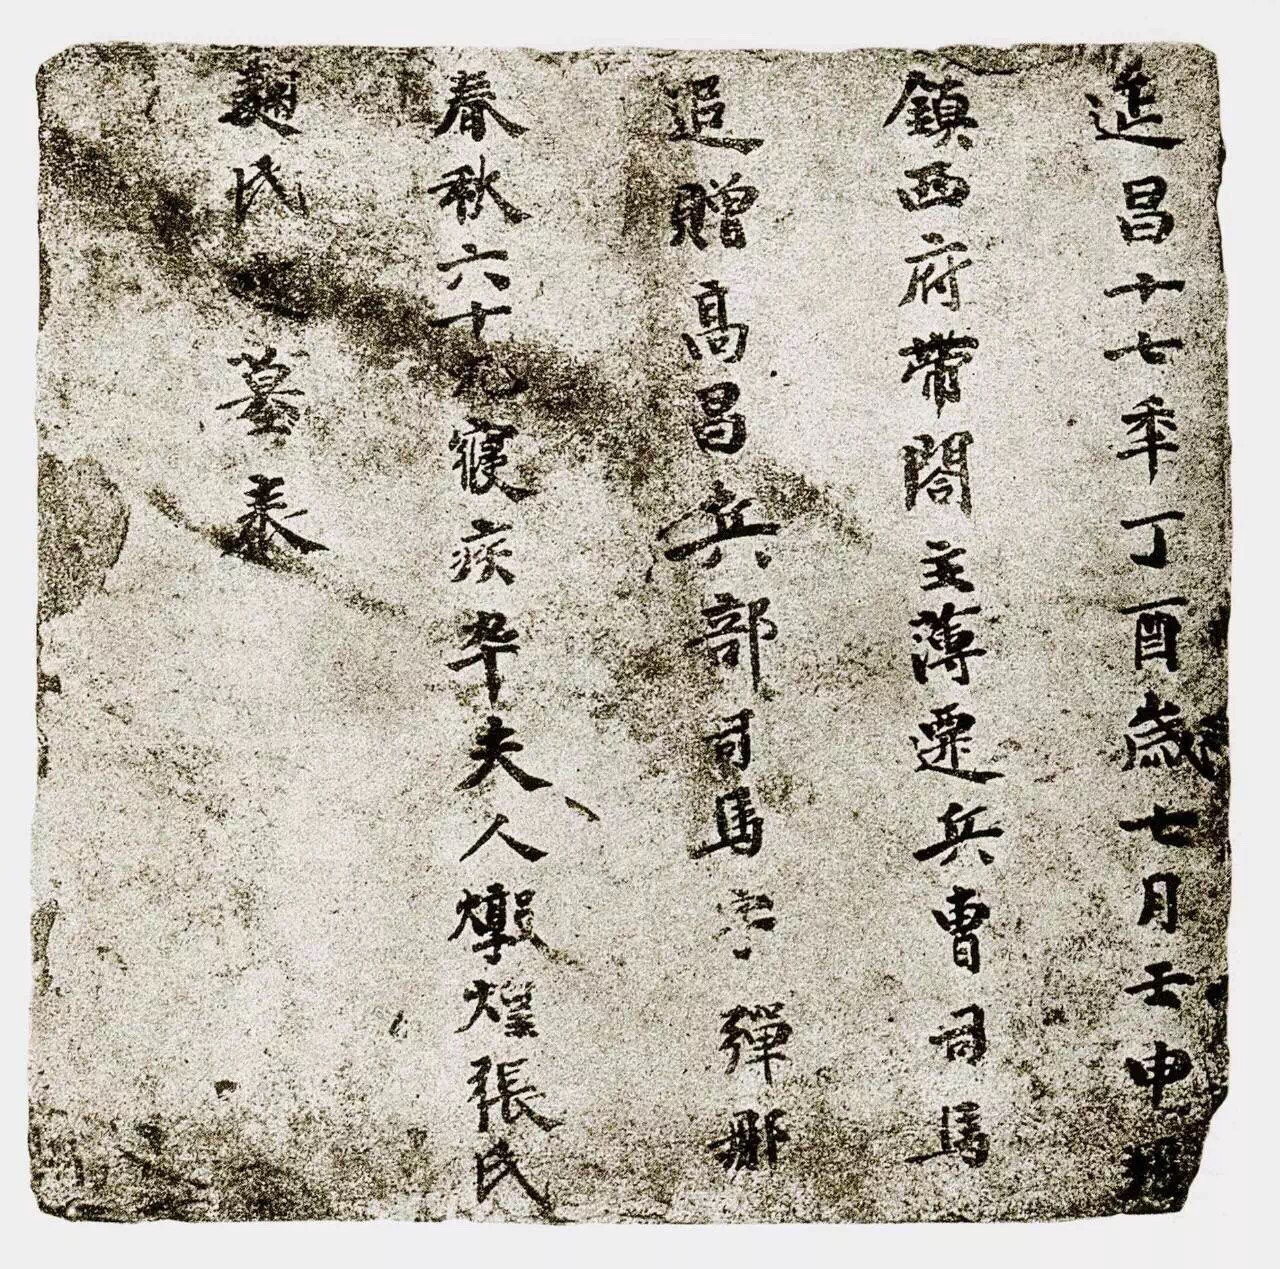 延昌十七年丁酉歲七月壬申朔
鎮西府帶閣主薄遷兵曹司馬
追贈高昌兵部司馬彈那
春秋六十九寢疾卒夫人燉煌張氏
麴氏墓表